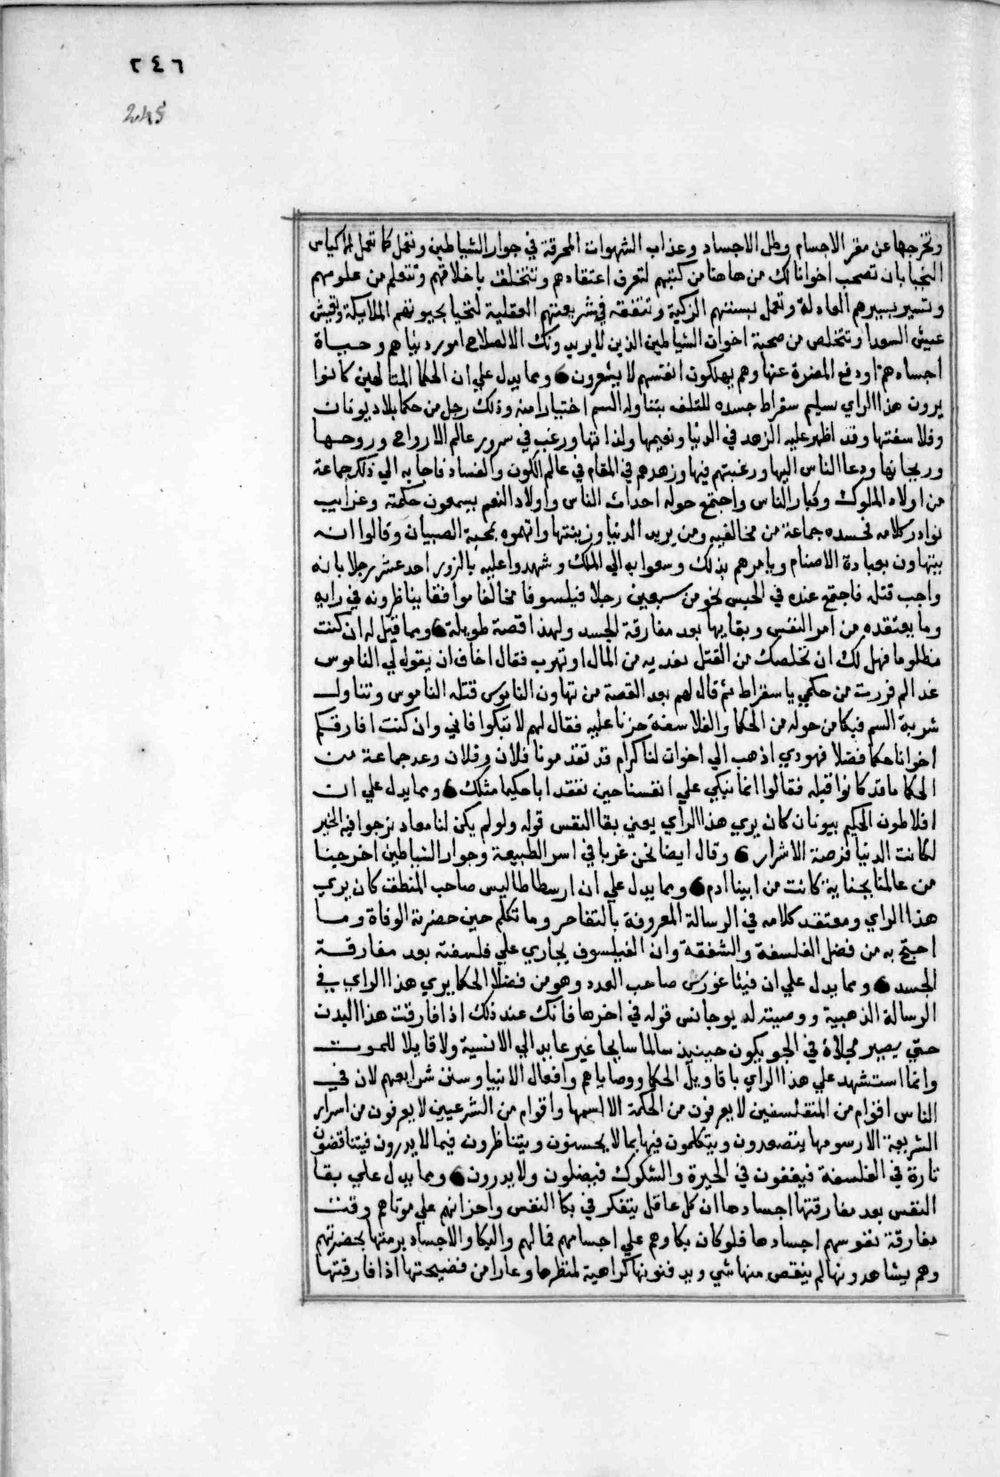 ٢٤٦
245
وتخرجها عن مقر الاجسام وظل الاجساد وعذاب الشهوات المحرقة في جوار الشياطين وتعمل كما تعمل الاكياس
النجبا بان تصحب اخوانا لك من هاهنا من كتبهم لتعرف اعتقادهم وتتخلف باخلاقهم وتتعلم من علومهم
وتسير بسيرهم العادلة وتعمل بسنتهم الزكية وتتفقه في شريعتهم العقلية لتحيا بحيوتهم الملايكة وتعيش
عيش السعدا وتتخلص من صحبة اخوات الشياطين الذين لا يريدونك الا لصلاح امور دنياهم وحياة
اجسادهم او دفع المضرة عنها وهم يهلكون انفسهم لا يشعرون ومما يدل علي ان الحكما المتالهين كانوا
يرون هذا الراي تسليم سقراط جسده للتلف بتناوله السم اختيارا منه وذلك رجل من حكما بلاد يونان
وفلاسفتها وقد اظهر عليه الزهد في الدنيا ونعيمها ولذاتها ورغب في سرور عالم الارواح وروحها
وريحانها ودعا الناس اليها ورغبتهم فيها وزهدهم في المقام في عالم الكون والفساد فاجابه الي ذلك جماعة
من اولاد الملوك وكبار الناس واجتمع حوله احداث الناس واولاد النعم يسمعون حكمته وغرايب
نوادر كلامه فحسده جماعة من مخالفيه ومن يريد الدنيا وزينتها واتهموه بمحبة الصبيان وقالوا انه
يتهاون بعبادة الاصنام ويامرهم بذلك وسعوا به الي الملك وشهدوا عليه بالزور احد عشر رجلا بانه
واجب قتله فاجتمع عنده في الحبس نحو من سبعين رجلا فيلسوفا مخالفا موافقا يناظرونه في رايه
وما يعتقده من امر النفس وبقايها بعد مفارقة الجسد ولهذا قصة طويلة ومما قيل له ان كنت
مظلوما فهل لك ان نخلصك من القتل بفدية من المال او تهرب فقال اخاف ان يقول لي الناموس
غدا لم فررت من حكمي يا سقراط ثم قال لهم بعد القصة من تهاون الناموس قتله الناموس وتناول
شربة السم فبكا من حوله من الحكما والفلاسفة حزنا عليه فقال لهم لا تبكوا فاني وان كنت افارقكم
اخوانا حكما فضلا فهودي اذهب الي اخوات لنا كرام قد تقدمونا فلان وفلان وعد جماعة من
الحكما ما قد كانوا قبله فقالوا انما نبكي علي انفسنا حين نفقد ابا حكيما مثلك ومما يدل علي ان
افلاطون الحكيم بيونان كان يري هذا الراي يعني بقا النفس قوله ولو لم يكن لنا معاد نرجوا فيه الخير
لكانت الدنيا فرصة الاشرار وقال ايضا نحن غربا في اسر الطبيعة وجوار الشياطين اخرجنا
من عالمنا بجناية كانت من ابينا ادم ومما يدل علي ان ارسطاطاليس صاحب المنطق كان يري
هذا الراي ومعتقد كلامه في الرسالة المعروفة بالتفاحر وما تكلم حين حضرته الوفاة وما
احتج به من فضل الفلسفة والشفقة وان الفيلسوف يجازي علي فلسفته بعد مفارقة
الجسد ومما يدل علي ان فيثاغورس صاحب العدد وهو من فضلا الحكما يري هذا الراي في
الرسالة الذهبية ووصيته لديوجانس قوله في اخرها فانك عند ذلك اذا فارقت هذا البدن
حتي يصير مجلاة في الجو يكون حينيذ سالما سايجا غير عايد الي الانسية ولا قابلا للموت
وانما استشهد علي هذا الراي باقاويل الحكما ووصاياهم وافعال الانبيا وسنن شرايعهم لان في
الناس اقوام من المتفلسفين لا يعرفون من الحكمة الا اسمها واقوام من الشرعيين لا يعرفون من اسرار
الشريعة الا رسومها يتصدرون ويتكلمون فيها بما لا يحسنون ويتناظرون فيما لا يدرون فيتناقضون
تارة في الفلسفة فيقفون في الحيرة والشكوك فيضلون ولا يدرون ومما يدل علي بقا
النفس بعد مفارقتها اجسادها ان كل عاقل يتفكر في بكا النفس واحزانهم علي موتاهم وقت
مفارقة نفوسهم اجسادها فلو كان بكاوهم علي اجسامهم فمالهم والبكا والاجساد برمتها بحضرتهم
وهم يشاهدونها لم ينقص منها شي ويدفنونها كراهية لمنظرها وعارا من فضيحتها اذا فارقتها